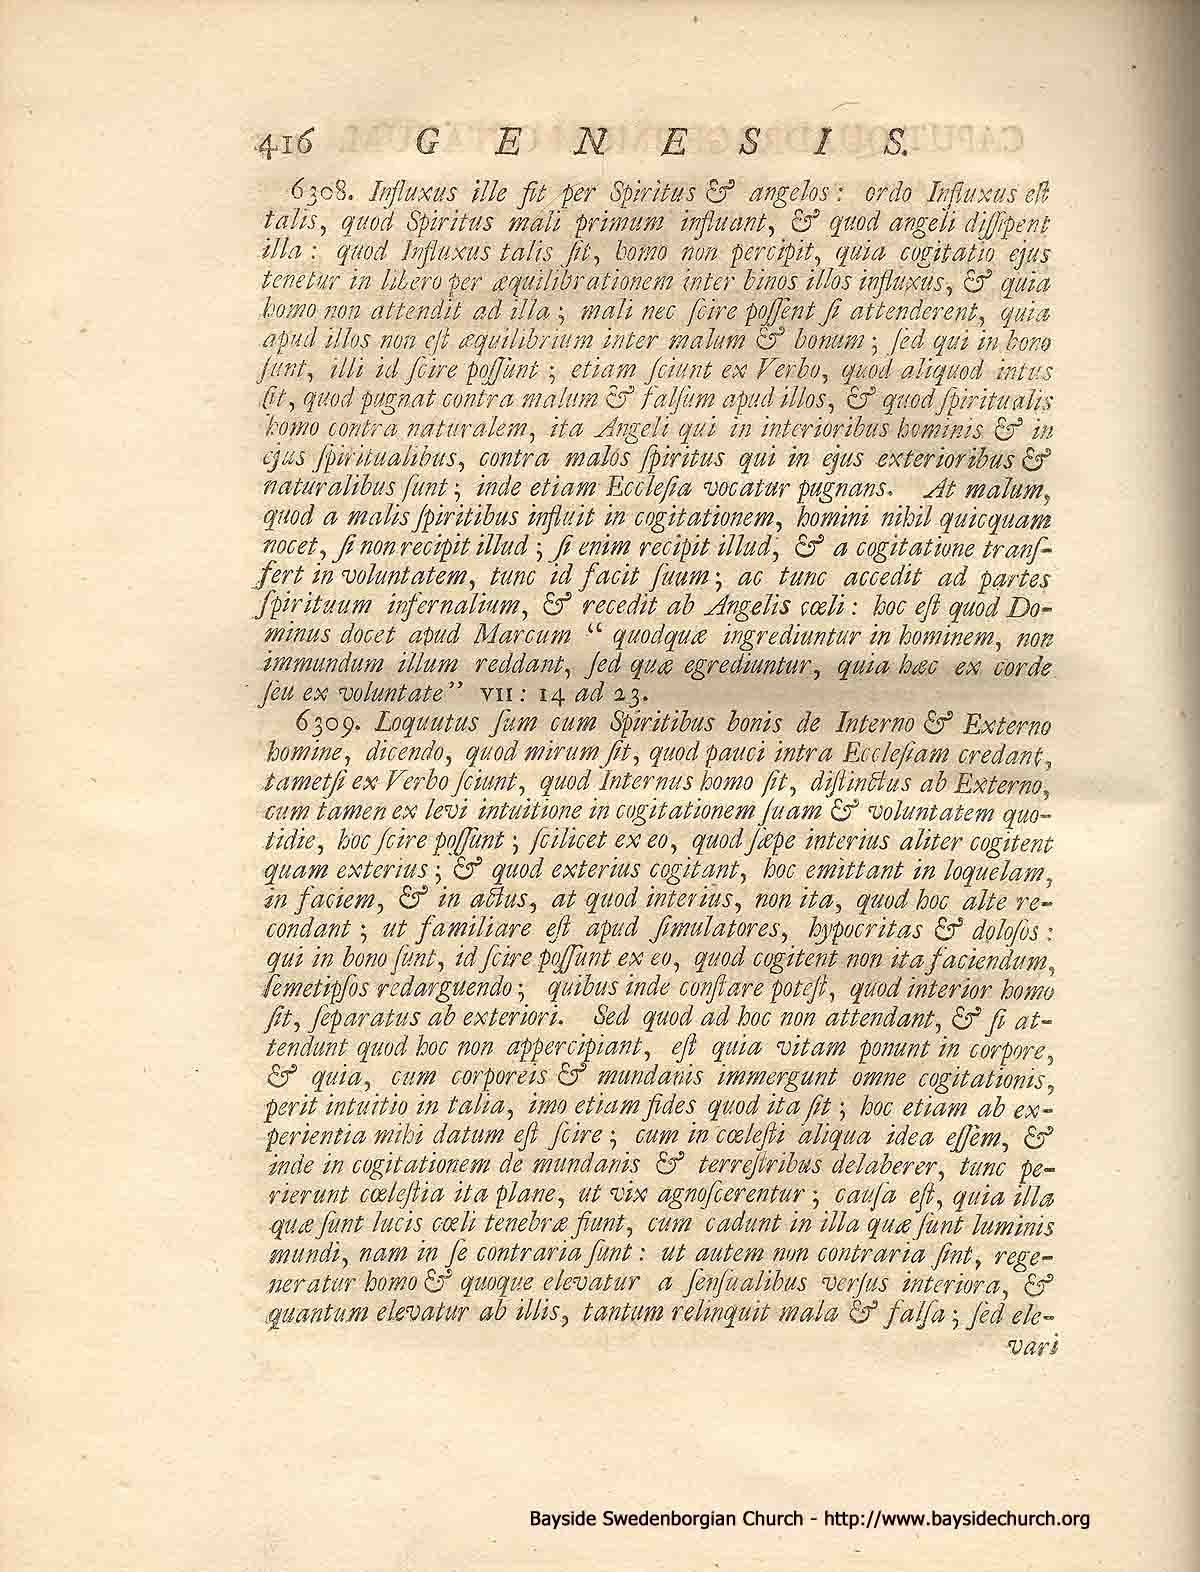 416 G E N E S I S.
6308. Influxus ille fit per Spiritus & angelos: ordo Influxus eſt
talis, quod Spiritus mali primum influant, & quod angeli diſſipent
illa: quod Influxus talis ſit, homo non percipit, quia cogitatio ejus
tenetur in libero per æquilibrationem inter binos illos influxus, & quia
homo non attendit ad illa; mali nec ſcire poſſent ſi attenderent, quia
apud illos non eſt æquilibrium inter malum & bonum; ſed qui in bono
ſunt, illi id ſcire poſſunt; etiam ſciunt ex Verbo, quod aliquod intus
ſit, quod pugnat contra malum & falſum apud illos, & quod ſpiritualis
homo contra naturalem, ita Angeli qui in interioribus hominis & in
ejus ſpiritualibus, contra malos ſpiritus qui in ejus exterioribus &
naturalibus ſunt; inde etiam Eccleſia vocatur pugnans. At malum,
quod a malis ſpiritibus influit in cogitationem, homini nihil quicquam
nocet, ſi non recipit illud; ſi enim recipit illud, & a cogitatione tranſ-
fert in voluntatem, tunc id facit ſuum; ac tunc accedit ad partes
ſpirituum infernalium, & recedit ab Angelis cœli: hoc eſt quod Do-
minus docet apud Marcum “ quodquæ ingrediuntur in hominem, non
immundum illum reddant, ſed quæ egrediuntur, quia hæc ex corde
ſeu ex voluntate” VII: 14 ad 23.
6309. Loquutus ſum cum Spiritibus bonis de Interno & Externo
homine, dicendo, quod mirum ſit, quod pauci intra Eccleſiam credant,
tametſi ex Verbo ſciunt, quod Internus homo ſit, diſtinctus ab Externo,
cum tamen ex levi intuitione in cogitationem ſuam & voluntatem quo-
tidie, hoc ſcire poſſunt; ſcilicet ex eo, quod ſæpe interius aliter cogitent
quam exterius; & quod exterius cogitant, hoc emittant in loquelam,
in faciem, & in actus, at quod interius, non ita, quod hoc alte re-
condant; ut familiare eſt apud ſimulatores, hypocritas & doloſos:
qui in bono ſunt, id ſcire poſſunt ex eo, quod cogitent non ita faciendum,
ſemetipſos redarguendo; quibus inde conſtare poteſt, quod interior homo
ſit, ſeparatus ab exteriori. Sed quod ad hoc non attendant, & ſi at-
tendunt quod hoc non appercipiant, eſt quia vitam ponunt in corpore,
& quia, cum corporeis & mundanis immergunt omne cogitationis,
perit intuitio in talia, imo etiam fides quod ita ſit; hoc etiam ab ex-
perientia mihi datum eſt ſcire; cum in cœleſti aliqua idea eſſem, &
inde in cogitationem de mundanis & terreſtribus delaberer, tunc pe-
rierunt cœleſtia ita plane, ut vix agnoſcerentur; cauſa eſt, quia illa
quæ ſunt lucis cœli tenebræ fiunt, cum cadunt in illa quæ ſunt luminis
mundi, nam in ſe contraria ſunt: ut autem non contraria ſint, rege-
neratur homo & quoque elevatur a ſenſualibus verſus interiora, &
quantum elevatur ab illis, tantum relinquit mala & falſa; ſed ele-
vari
Bayside Swedenborgian Church - http://www.baysidechurch.org